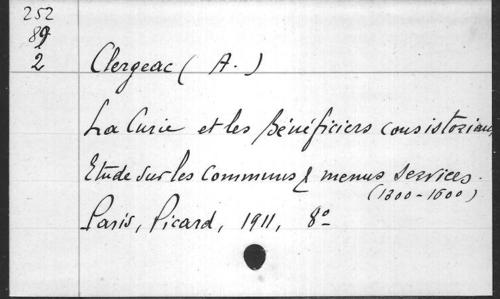 252
89
2
Clergeac ( A. )
La Curie et les Bénéficiers consistoriaux
Etude sur les communs & menus services.
(1300-1600)
Paris, Picard, 1911, 8º